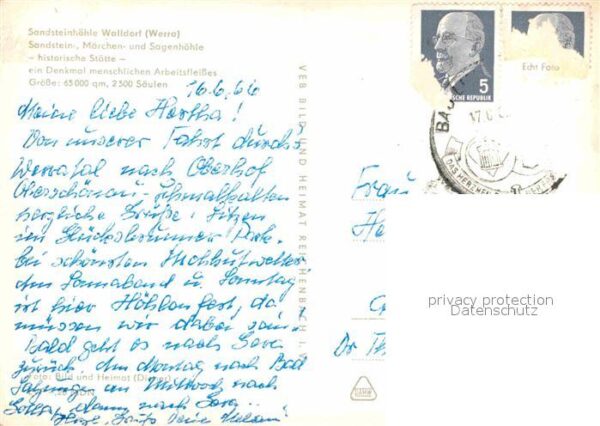 Sandsteinhöhle Walldorf (Werra)
Sandstein-, Märchen- und Sagenhöhle
– historische Stätte –
ein Denkmal menschlichen Arbeitsfleißes
Größe: 65 000 qm, 2 500 Säulen
16.6.66
Meine liebe Hertha!
Von unserer Fahrt durch's
Werratal nach Oberhof
Oberschönau - Schmalkalden
herzliche Grüße. Sitzen
im Glücksbrunner Park
bei schönstem
den Sonnabend u. Sonntag
ist hier Höhlenfest, da
müssen wir dabei sein.
Bald geht es nach Gera
zurück. Am Montag nach Bad
am Mittwoch nach
Gotha, dann nach Gera..
Herzl. Grüße Deine
Foto: Bild und Heimat
VEB BILD UND HEIMAT REICHENBACH I.
5
SCHE REPUBLIK
Echt Foto
BA
17.6.
Frau
He
G
Dr Th
privacy protection
Datenschutz